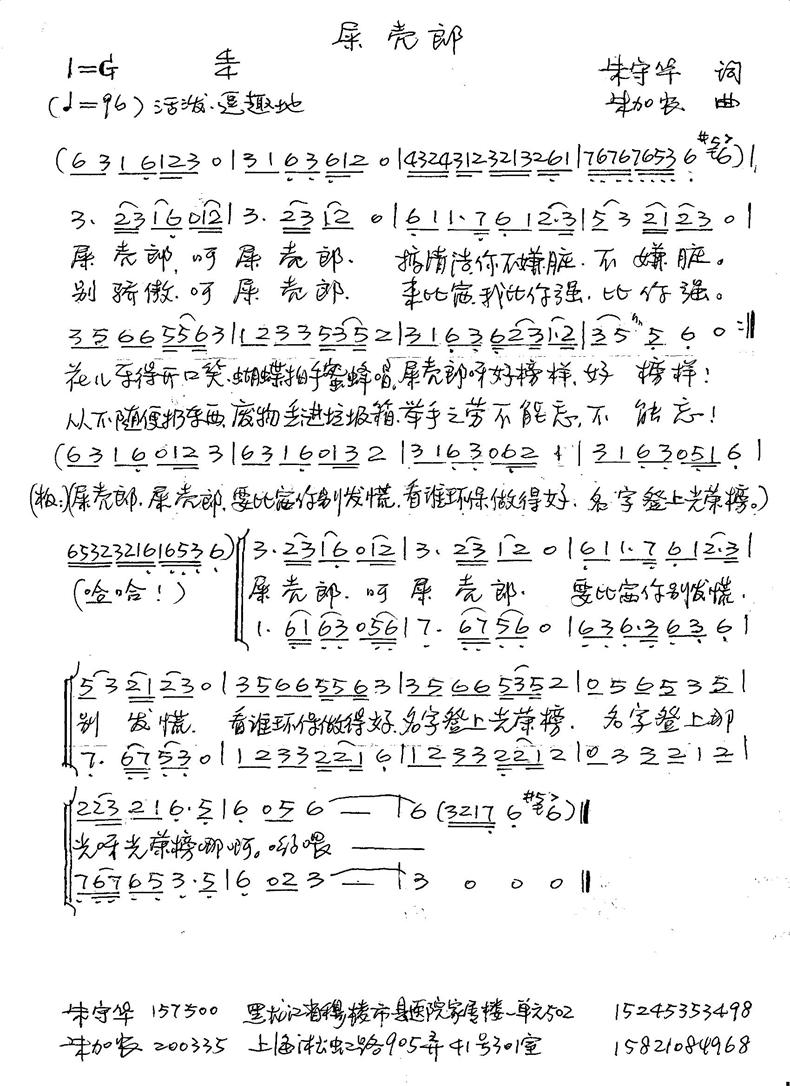 屎壳郎
1=G 4/4
朱守华 词
(♩=96) 活泼、逗趣地
朱加农 曲
(6 3 1 6 0123 0 | 3 1 6 3 6 12 0 | 432431232132 61 | 76767653 6 #5 6) |
3. 23 16 012 | 3. 23 12 0 | 6 1 1. 7 6 12.3 | 5 3 21 23 0 |
屎壳郎,呵屎壳郎. 搞清洁你不嫌脏.不嫌脏。
别骄傲.呵屎壳郎. 来比富.我比你强.比你强。
3 5 6 6 5 5 6 3 | 1 2 3 3 5 3 5 2 | 3 1 6 3 6 2 3 1.2 | 3 5 5 6 0 :||
花儿乐得开口笑.蝴蝶拍手蜜蜂唱.屎壳郎呀好榜样.好榜样!
从不随便扔东西.废物丢进垃圾箱.举手之劳不能忘.不能忘!
(6 3 1 6 0 1 2 3 | 6 3 1 6 0 1 3 2 | 3 1 6 3 0 6 2 1 | 3 1 6 3 0 5 1 6 |
(屎壳郎.屎壳郎.要比富你别发慌.看谁环保做得好.名字登上光荣榜。)
653232161653 6) 3. 23 16 012 | 3. 23 12 0 | 6 1 1. 7 6 12.3 |
(哈哈!) 屎壳郎.呵屎壳郎. 要比富你别发慌.
1. 61 63 056 | 7. 67 56 0 | 6 3 6. 3 6 3 6 |
5 3 21 23 0 | 3 5 6 6 5 5 6 3 | 3 5 6 6 5 3 5 2 | 0 5 6 5 3 5 |
别发慌. 看谁环保做得好.名字登上光荣榜. 名字登上那
7. 67 53 0 | 1 2 3 3 2 2 1 6 | 1 2 3 3 2 2 1 2 | 0 3 3 2 1 2 |
2 2 3 2 1 6. 5 | 6 0 5 6 — | 6 (3217 6 #5 6) ||
光呀光荣榜哪啊。哟喂 ——
7 6 7 6 5 3. 5 | 6 0 2 3 — | 3 0 0 0 ||
朱守华 157500 黑龙江省穆棱市县医院家属楼一单元502 15245353498
朱加农 200335 上海淞虹路905弄41号301室 15821084968